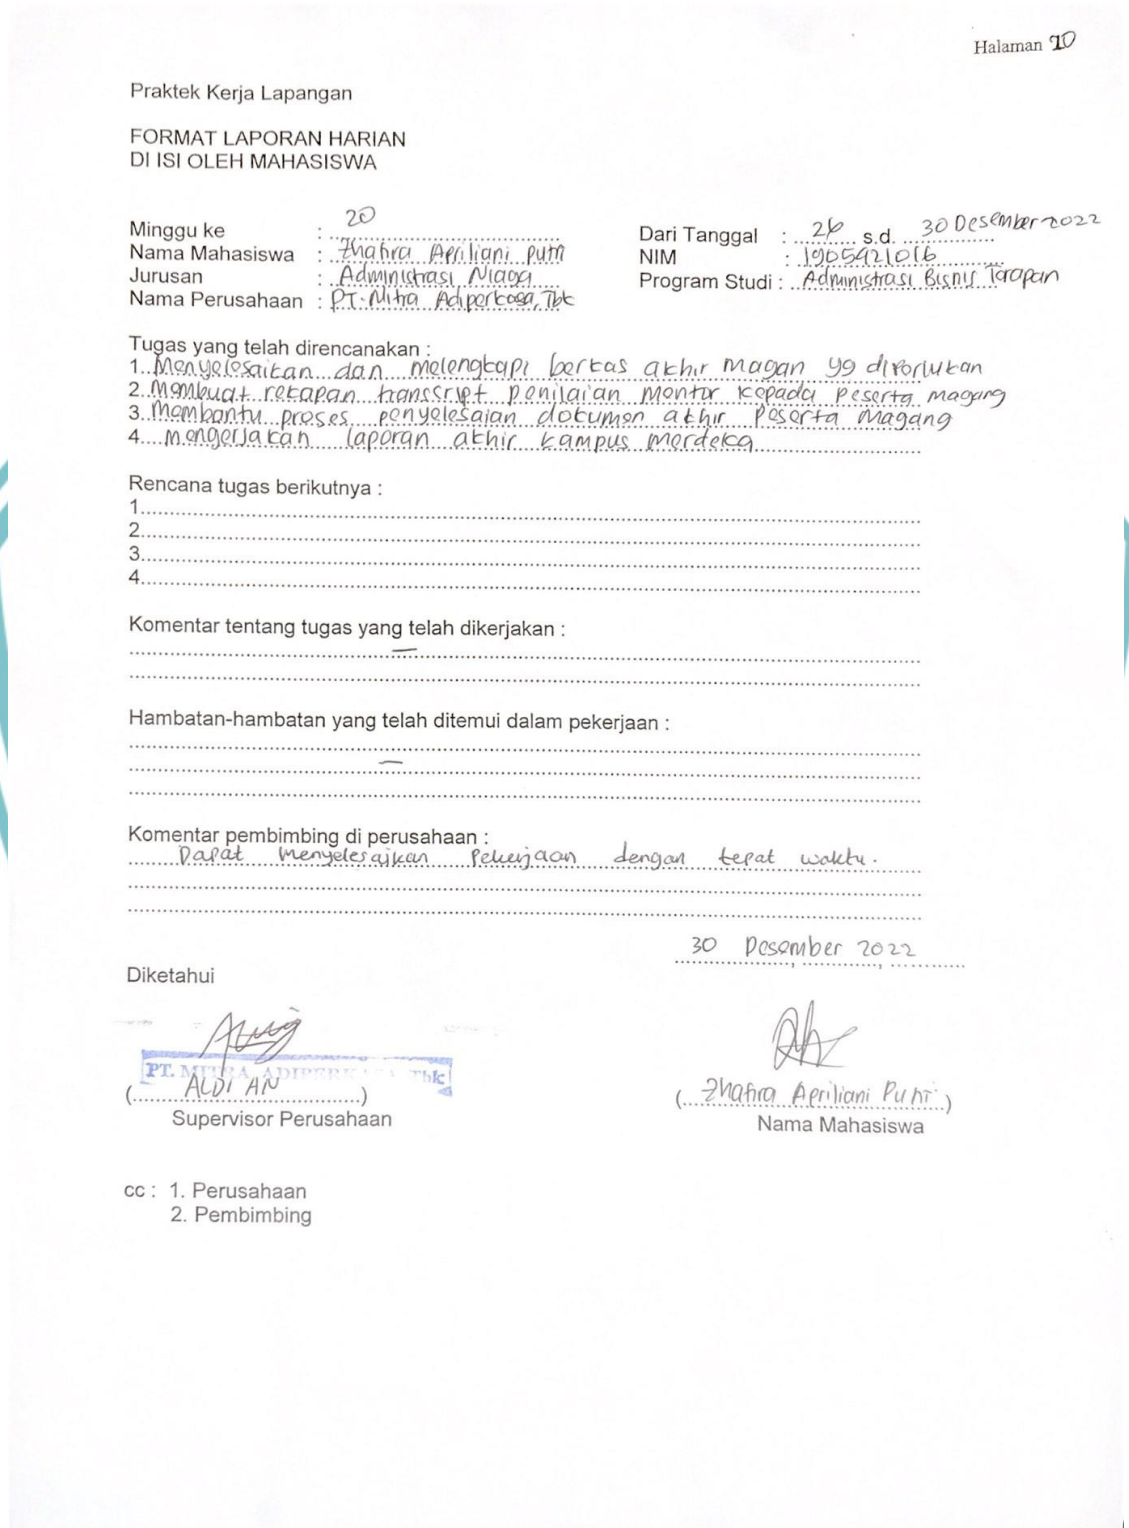 Halaman 20
Praktek Kerja Lapangan
FORMAT LAPORAN HARIAN
DI ISI OLEH MAHASISWA
Minggu ke : 20
Nama Mahasiswa : Zhafira Apriliani Putri
Jurusan : Administrasi Niaga
Nama Perusahaan : PT. Mitra Adiperkasa, Tbk
Dari Tanggal : 26 s.d. 30 Desember 2022
NIM : 1905421016
Program Studi : Administrasi Bisnis Terapan
Tugas yang telah direncanakan :
1. Menyelesaikan dan melengkapi berkas akhir magan yg diperlukan
2. Membuat rekapan transsript penilaian mentor kepada peserta magang
3. Membantu proses penyelesaian dokumen akhir peserta magang
4. Mengerjakan laporan akhir kampus merdeka
Rencana tugas berikutnya :
1.
2.
3.
4.
Komentar tentang tugas yang telah dikerjakan :
—
Hambatan-hambatan yang telah ditemui dalam pekerjaan :
—
Komentar pembimbing di perusahaan :
Dapat menyelesaikan pekerjaan dengan tepat waktu.
30 Desember 2022
Diketahui
PT. MITRA ADIPERKASA Tbk
(ALDI AN)
Supervisor Perusahaan
(Zhafira Apriliani Putri)
Nama Mahasiswa
cc : 1. Perusahaan
2. Pembimbing